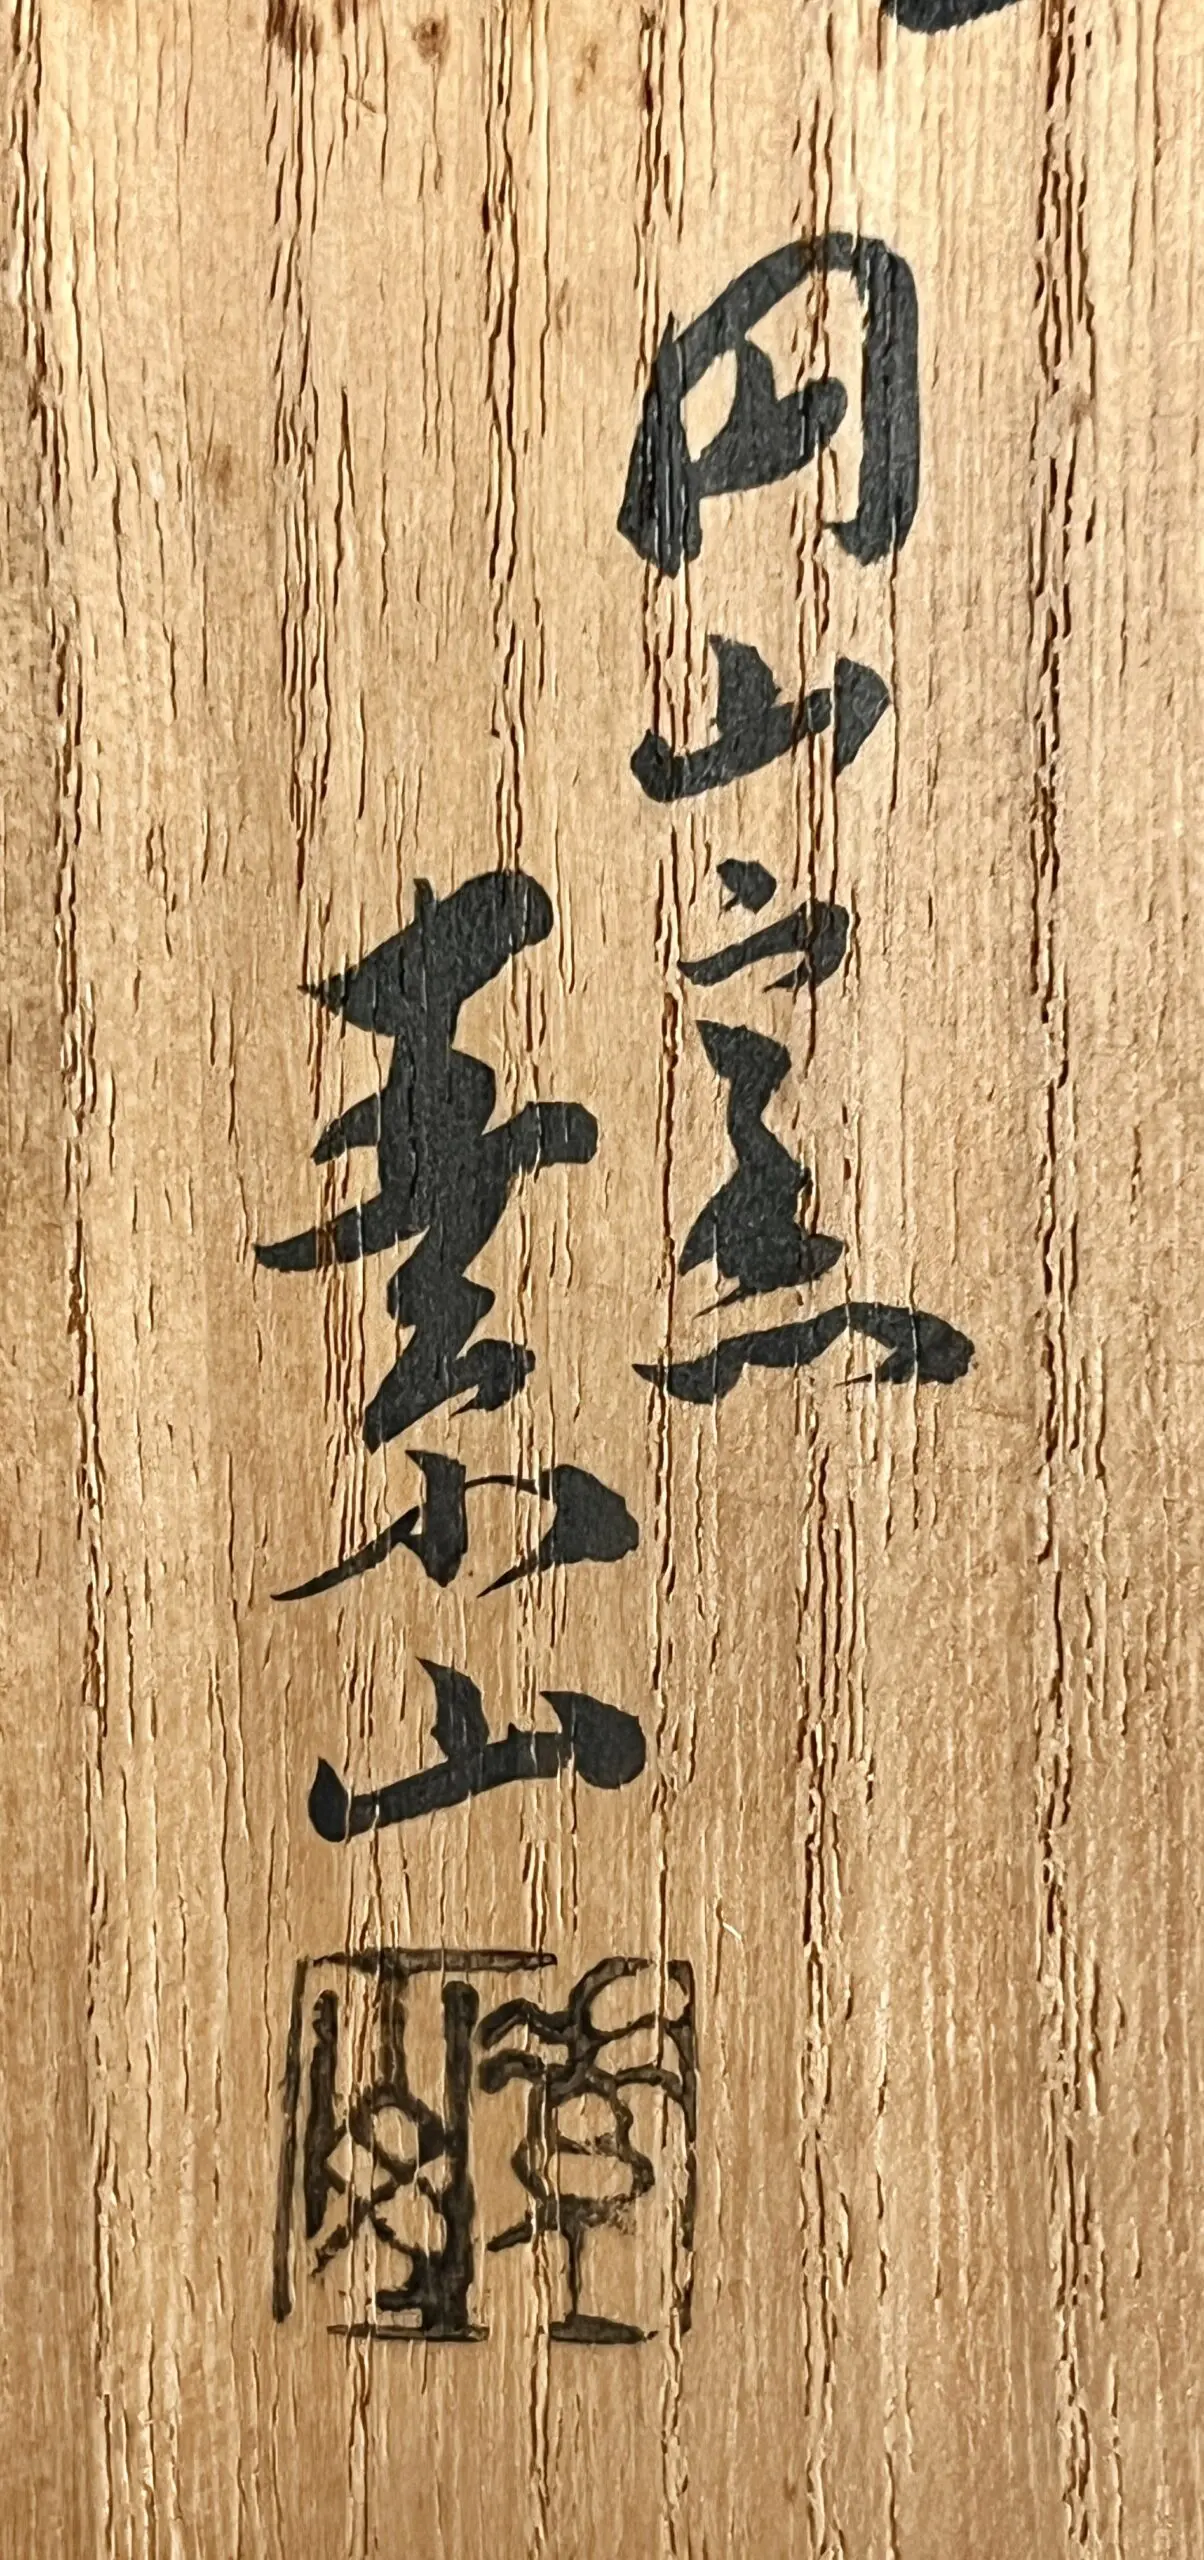 円山窯
素山